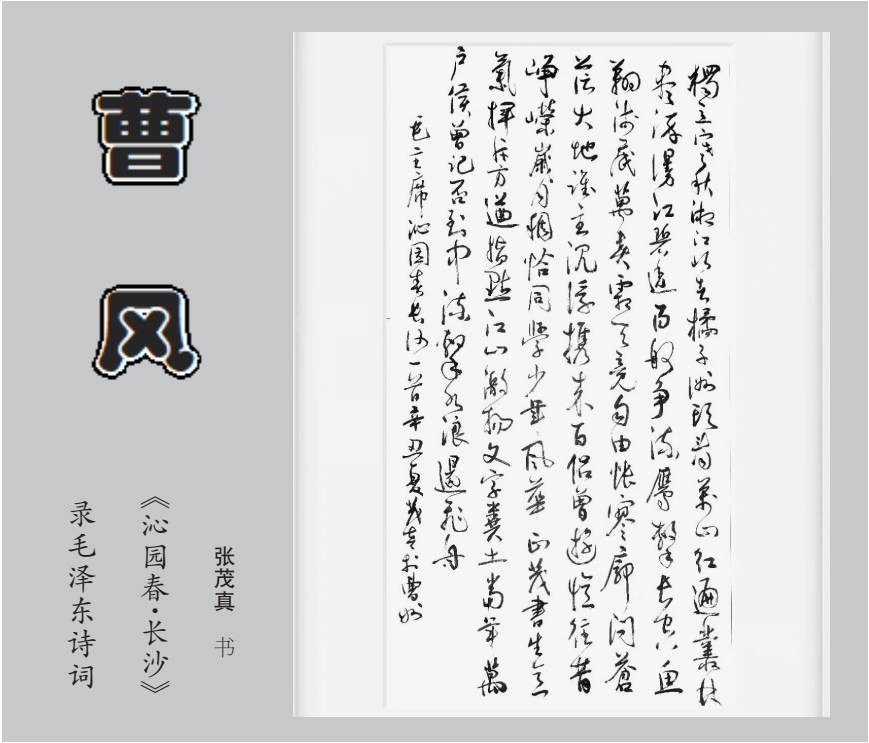 曹风
張茂真 书
《沁园春·长沙》
录毛泽东诗词
獨立寒秋湘江北去橘子洲頭看萬山红遍叢林
盡染漫江碧透百舸争流鷹擊長空魚
翔浅底萬类霜天竞自由怅寥廓问蒼
茫大地誰主沉浮携来百侣曾遊憶往昔
峥嶸嵗月稠恰同學少年風華正茂書生意
氣揮斥方遒指點江山激揚文字糞土當年萬
户侯曾记否到中流擊水浪遏飛舟
毛主席沁园春長沙一首辛丑夏茂真於曹州